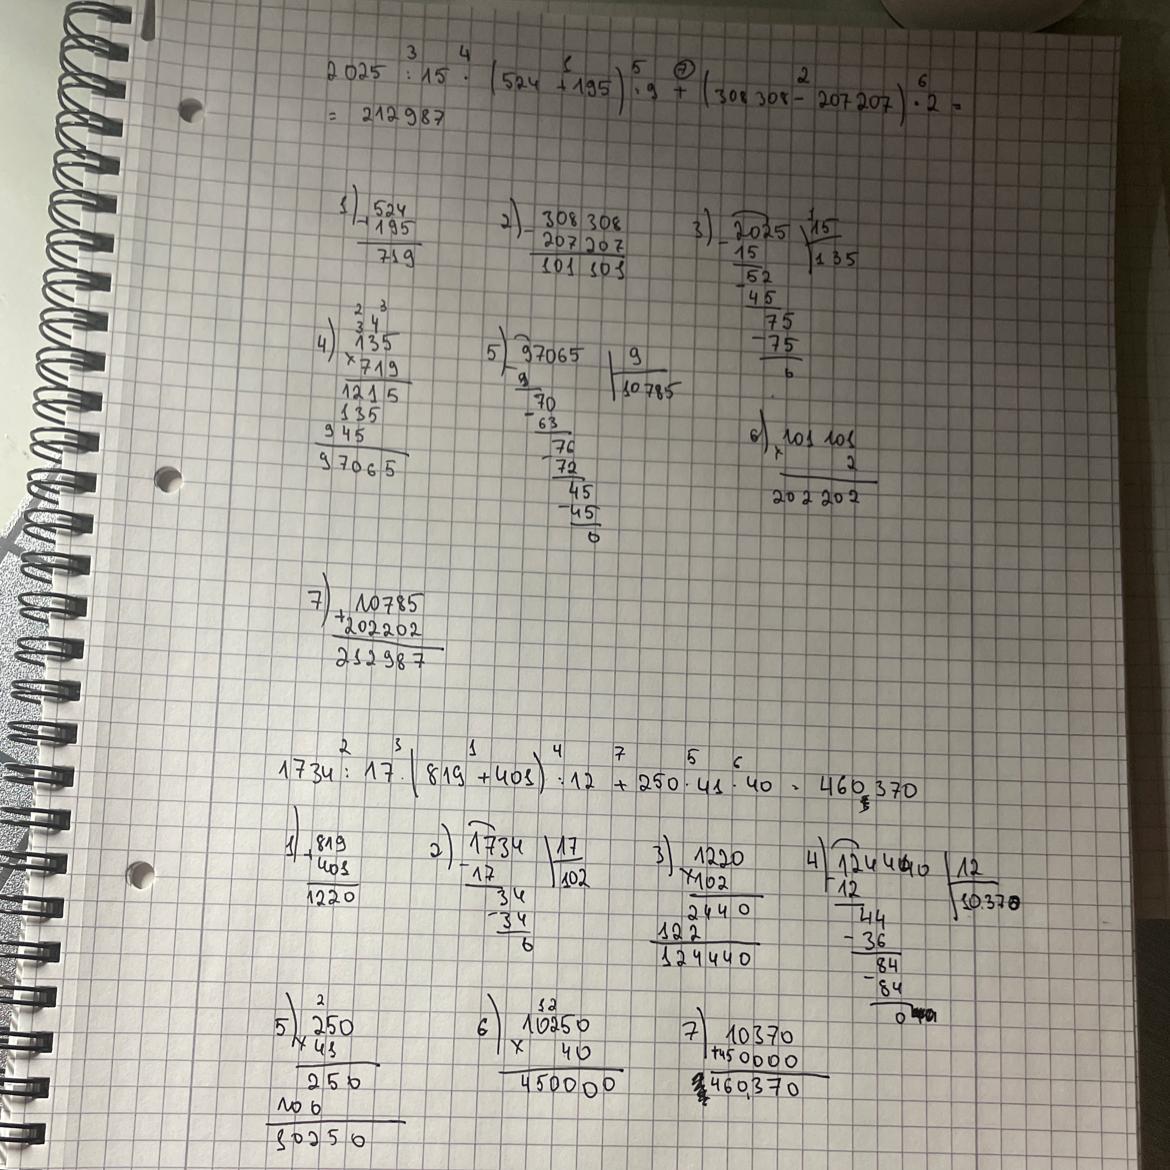 3 4 1 5 7 2 6
2025 : 15 · (524 + 195) : 9 + (308 308 - 207 207) · 2 =
= 212987
1) 524
+ 195
719
2) - 308 308
207 207
101 101
3) - 2025 | 15
15 | 135
- 52
45
75
- 75
0
2 3
3 4
4) 135
× 719
1215
135
945
97065
5) - 97065 | 9
9 | 10785
70
- 63
76
- 72
45
- 45
0
6) 101 101
× 2
202 202
7) 10785
+ 202202
212987
2 3 1 4 7 5 6
1734 : 17 · (819 + 401) : 12 + 250 · 41 · 40 = 460 370
1) 819
+ 401
1220
2) 1734 | 17
- 17 | 102
34
- 34
0
3) 1220
× 102
2440
122
124440
4) 124440 | 12
- 12 | 10370
44
- 36
84
- 84
0
2
5) 250
× 41
250
100
10250
12
6) 10250
× 40
450000
7) 10370
+ 450000
460370